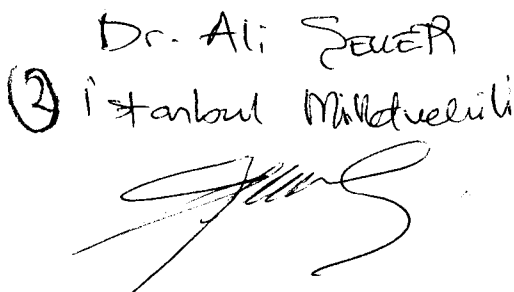 Dr. Ali ŞEKER
② İstanbul Milletvekili